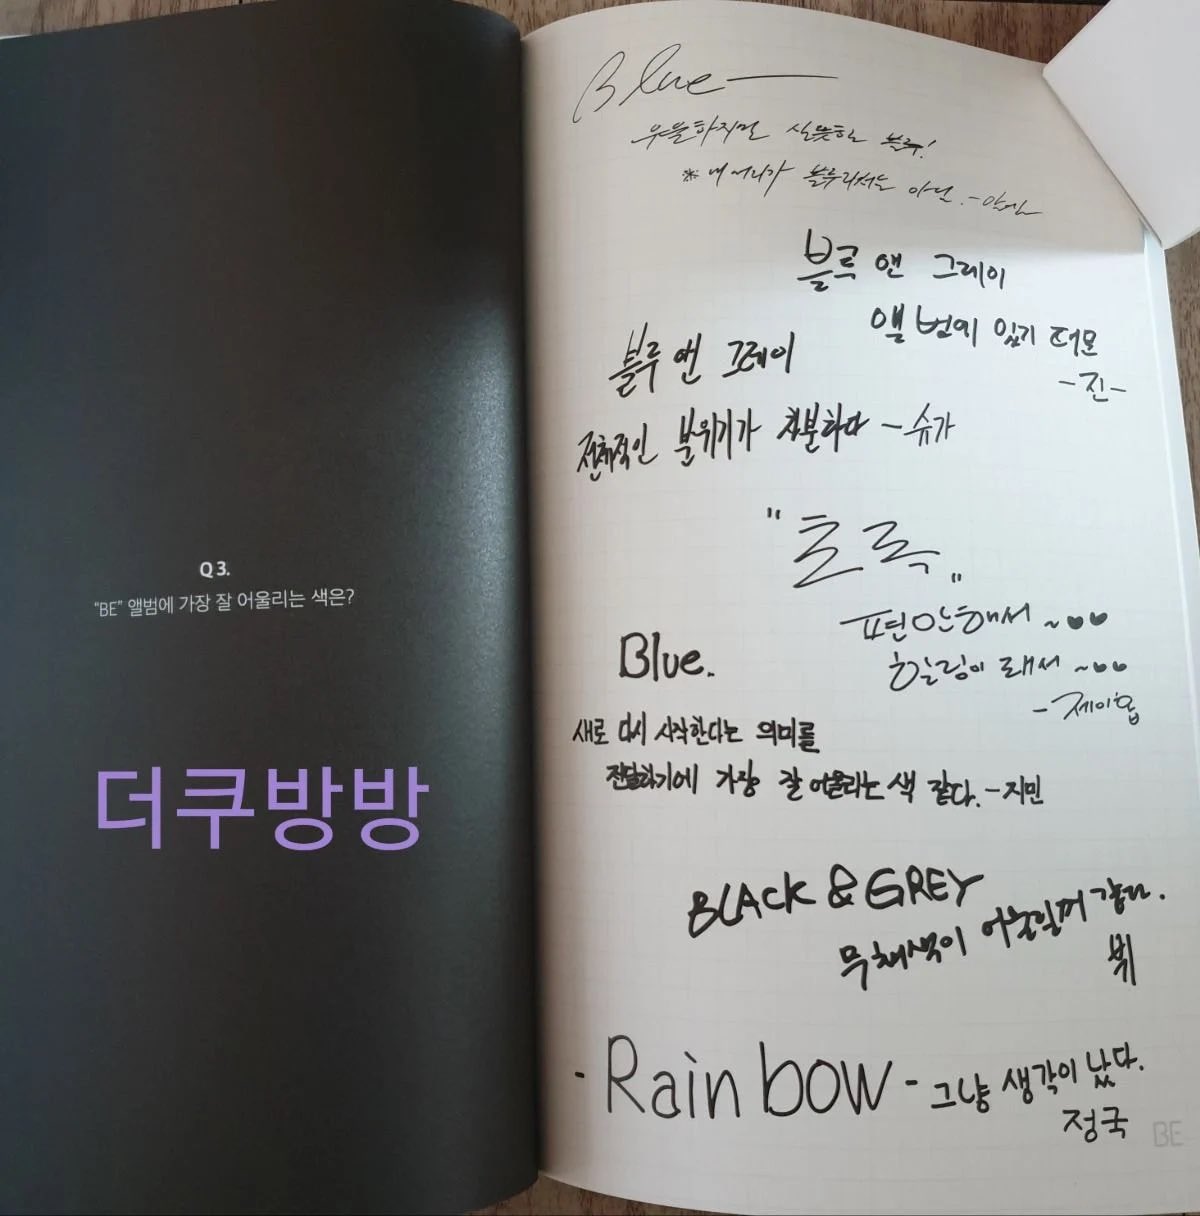 Q 3.
"BE" 앨범에 가장 잘 어울리는 색은?
더쿠방방
Blue
우울하지만 산뜻한 블루!
※ 내 머리가 블루라서는 아님.
블루 앤 그레이
앨범에 있기 때문
-진-
블루 앤 그레이
전체적인 분위기가 차분하다 - 슈가
"초록"
편안해서 ~♥♥
힐링이 돼서 ~♥♥
- 제이홉
Blue.
새로 다시 시작한다는 의미를
전달하기에 가장 잘 어울리는 색 같다. - 지민
BLACK & GREY
무채색이 어울릴꺼 같다.
뷔
- Rainbow - 그냥 생각이 났다.
정국
BE